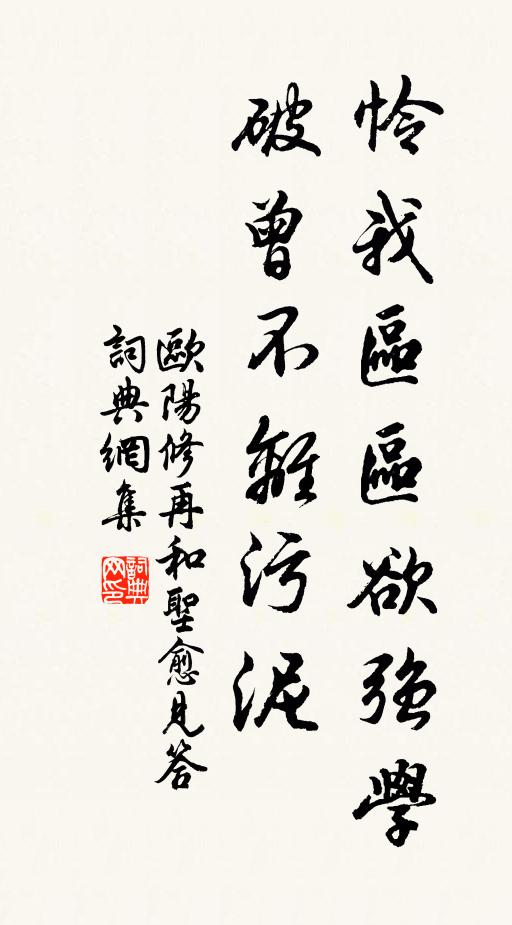 怜我區區欲強學
破曾不離污泥
歐陽修再和聖愈見答
詞典網集
詞典
网印